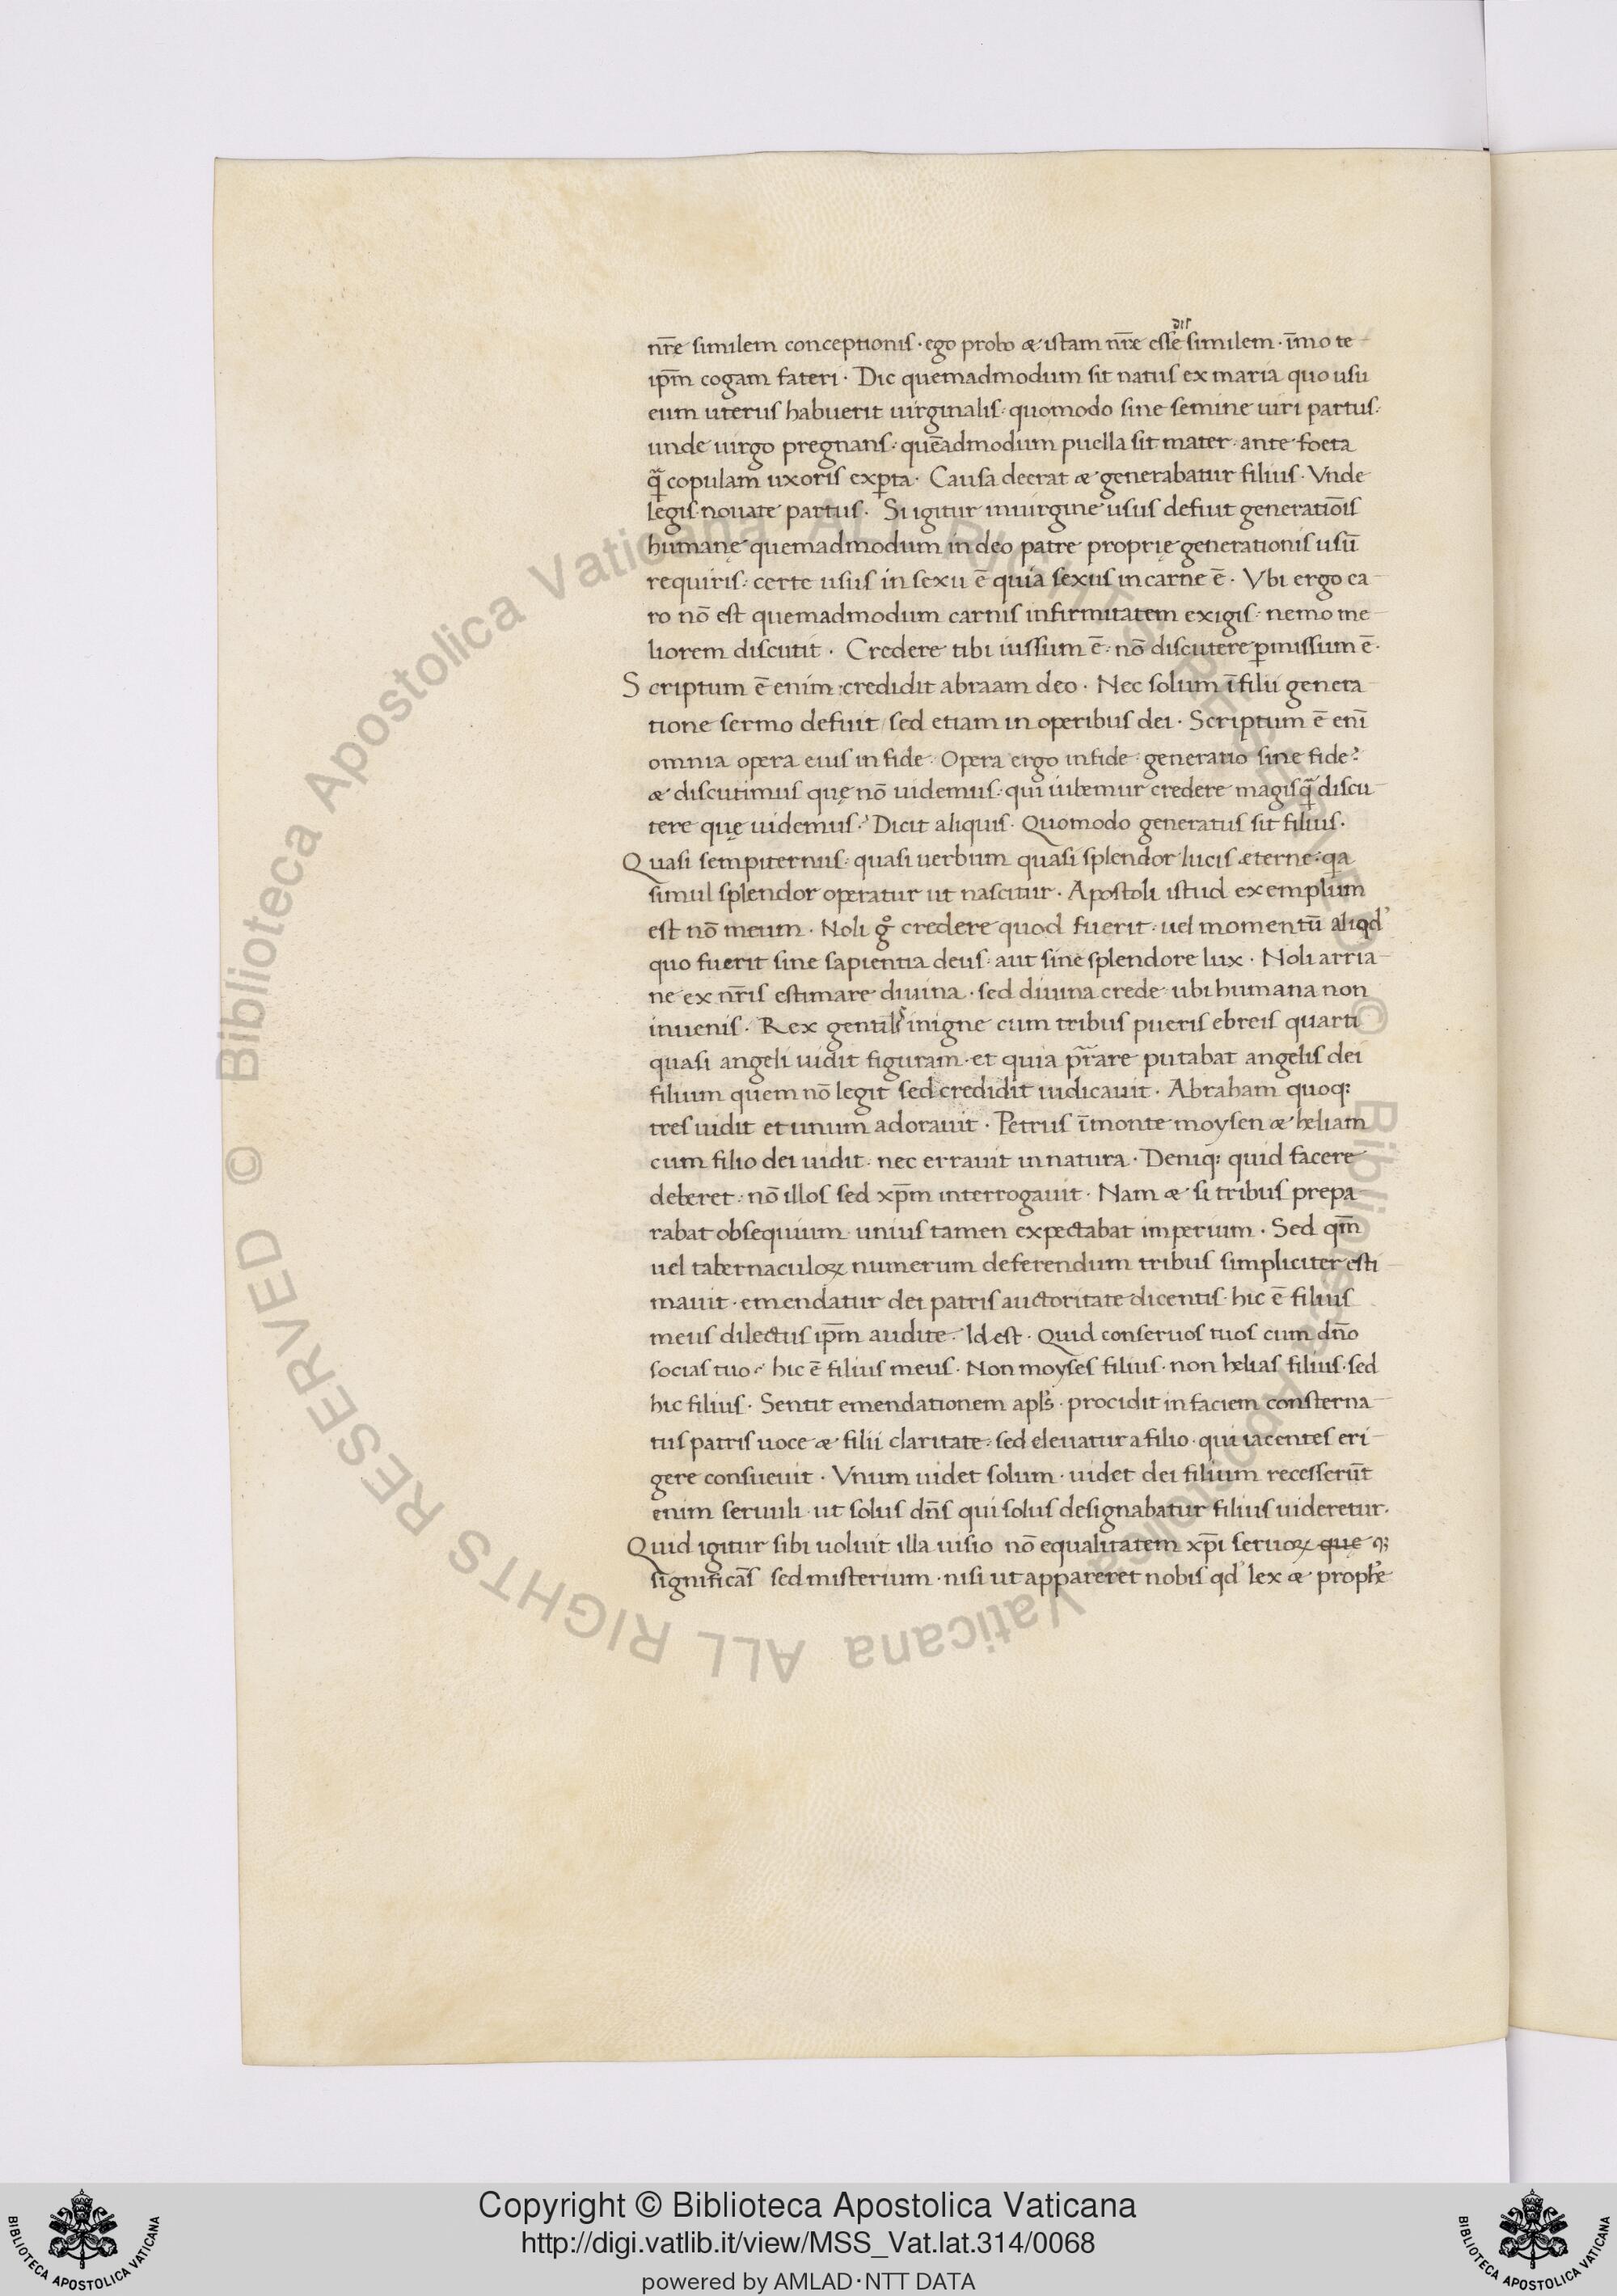 nr̄e similem conceptionis · ego probo & istam nr̄e esse dissimilem · īmo te
ip̄m cogam fateri · Dic quemadmodum sit natus ex maria quo usu
eum uterus habuerit uirginalis : quomodo sine semine uiri partus :
unde uirgo pregnans : quēadmodum puella sit mater · ante foeta
qᷓ copulam uxoris exꝑta · Causa deerat & generabatur filius · Vnde
legis nouate partus · Si igitur in uirgine usus defuit generatiōis
humanę quemadmodum in deo patre proprię generationis usū
requiris : certe usus in sexu ē quia sexus in carne ē · Vbi ergo ca
ro nō est quemadmodum carnis infirmitatem exigis : nemo me
liorem discutit · Credere tibi iussum ē : nō discutere ꝑmissum ē ·
Scriptum ē enim : credidit abraam deo · Nec solum ī filii genera
tione sermo defuit / sed etiam in operibus dei · Scriptum ē enī
omnia opera eius in fide · Opera ergo in fide · generatio sine fide ?
& discutimus quę nō uidemus : qui iubemur credere magis qᷓ discu
tere quę uidemus ? Dicit aliquis · Quomodo generatus sit filius ·
Quasi sempiternus : quasi uerbum quasi splendor lucis æterne : qa
simul splendor operatur ut nascitur · Apostoli istud exemplum
est nō meum · Noli gͦ credere quod fuerit · uel momentū aliqd
quo fuerit sine sapientia deus : aut sine splendore lux · Noli arria
ne ex nr̄is estimare diuina · sed diuina crede ubi humana non
inuenis · Rex gentilis in igne cum tribus pueris ebreis quarti
quasi angeli uidit figuram · et quia pr̄are putabat angelis dei
filium quem nō legit sed credidit iudicauit · Abraham quoq:
tres uidit et unum adorauit · Petrus ī monte moysen & heliam
cum filio dei uidit · nec errauit in natura · Deniq: quid facere
deberet : nō illos sed xp̄m interrogauit · Nam & si tribus prepa
rabat obsequium unius tamen expectabat imperium · Sed qm̄
uel tabernaculoꝝ numerum deferendum tribus simpliciter esti
mauit · emendatur dei patris auctoritate dicentis · hic ē filius
meus dilectus ip̄m audite · Id est · Quid conseruos tuos cum dn̄o
socias tuo · hic ē filius meus · Non moyses filius · non helias filius · sed
hic filius · Sentit emendationem apl̄s · procidit in faciem consterna
tus patris uoce & filii claritate : sed eleuatur a filio · qui iacentes eri
gere consueuit · Vnum uidet solum · uidet dei filium recesserūt
enim seruuli · ut solus dn̄s qui solus designabatur filius uideretur ·
Quid igitur sibi uoluit illa uisio nō equalitatem xp̄i seruoꝝ que q;
significās sed misterium · nisi ut appareret nobis qd lex & prophe
Copyright © Biblioteca Apostolica Vaticana
http://digi.vatlib.it/view/MSS_Vat.lat.314/0068
powered by AMLAD·NTT DATA
BIBLIOTECA APOSTOLICA VATICANA
BIBLIOTECA APOSTOLICA VATICANA
© Biblioteca Apostolica Vaticana ALL RIGHTS RESERVED
© Biblioteca Apostolica Vaticana ALL RIGHTS RESERVED